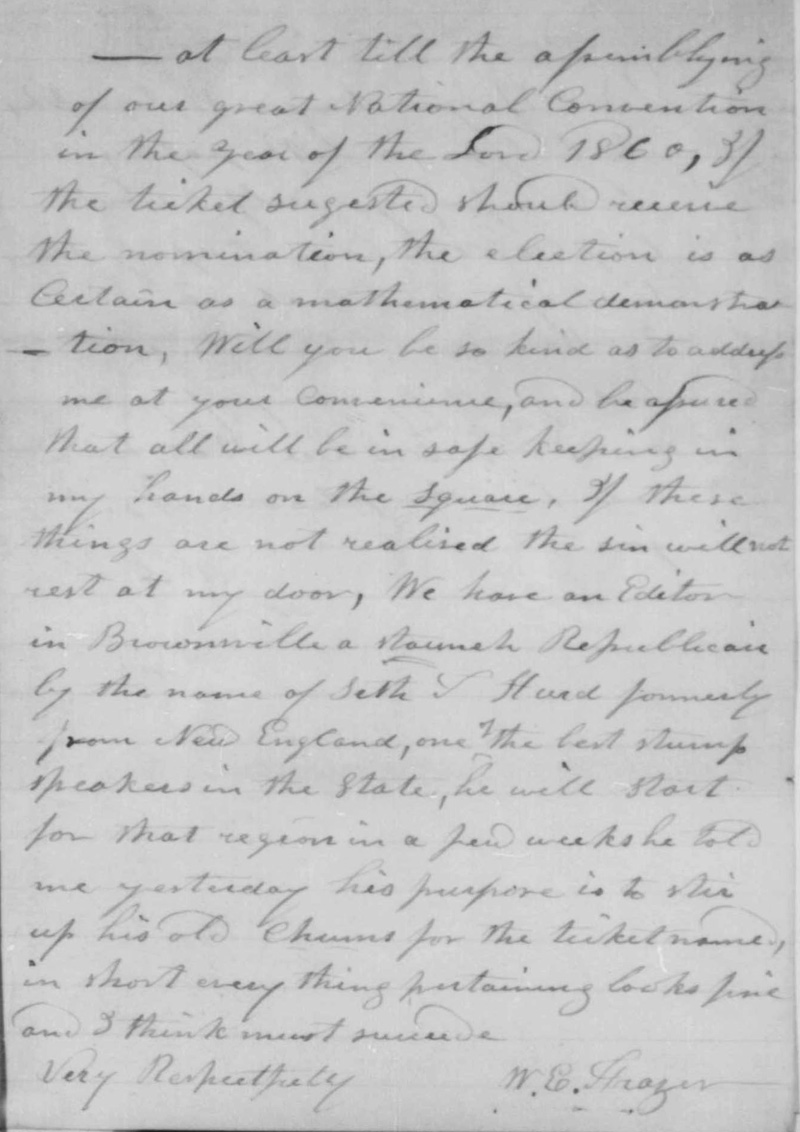 — at least till the assemblying
of our great National Convention
in the year of the Lord 1860, If
the ticket sugested should receive
the nomination, the election is as
Certain as a mathematical demonstra
- tion, Will you be so kind as to address
me at your convenience, and be assured
that all will be in safe keeping in
my hands on the square, If these
things are not realised the sin will not
rest at my door, We have an Editor
in Brownville a staunch Republican
by the name of Seth T Hurd formerly
from New England, one of the best stump
speakers in the State, he will start
for that region in a few weeks he told
me yesterday his purpose is to stir
up his old Chums for the ticket named,
in short every thing pertaining looks fine
and I think must succede
Very Respectfully W. E. Frazer